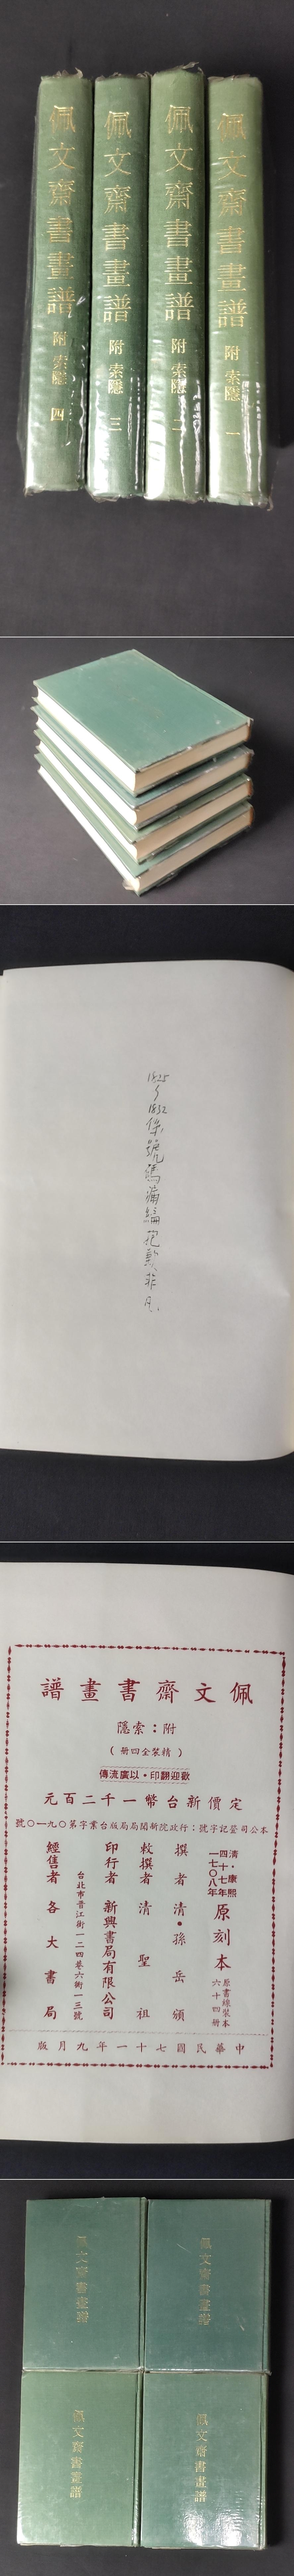 佩文齋書畫譜 附 索隱 四
佩文齋書畫譜 附 索隱 三
佩文齋書畫譜 附 索隱 二
佩文齋書畫譜 附 索隱 一
1825
1832
係號碼漏編抱歉非凡
譜畫書齋文佩
隱索：附
（冊四全裝精）
傳流廣以・印翻迎歡
元百二千一幣台新價定
號〇一九〇第字業台版局聞新院政行：號字記登司公本
清・康熙四十七年
一七〇八年
原刻本
原書線裝本
六十四冊
撰者 清・孫岳頒
敕撰者 清聖祖
印行者 新興書局有限公司
台北市晋江街一二四巷六衖一三號
經售者 各大書局
版月九年一十七國民華中
佩文齋書畫譜
佩文齋書畫譜
佩文齋書畫譜
佩文齋書畫譜